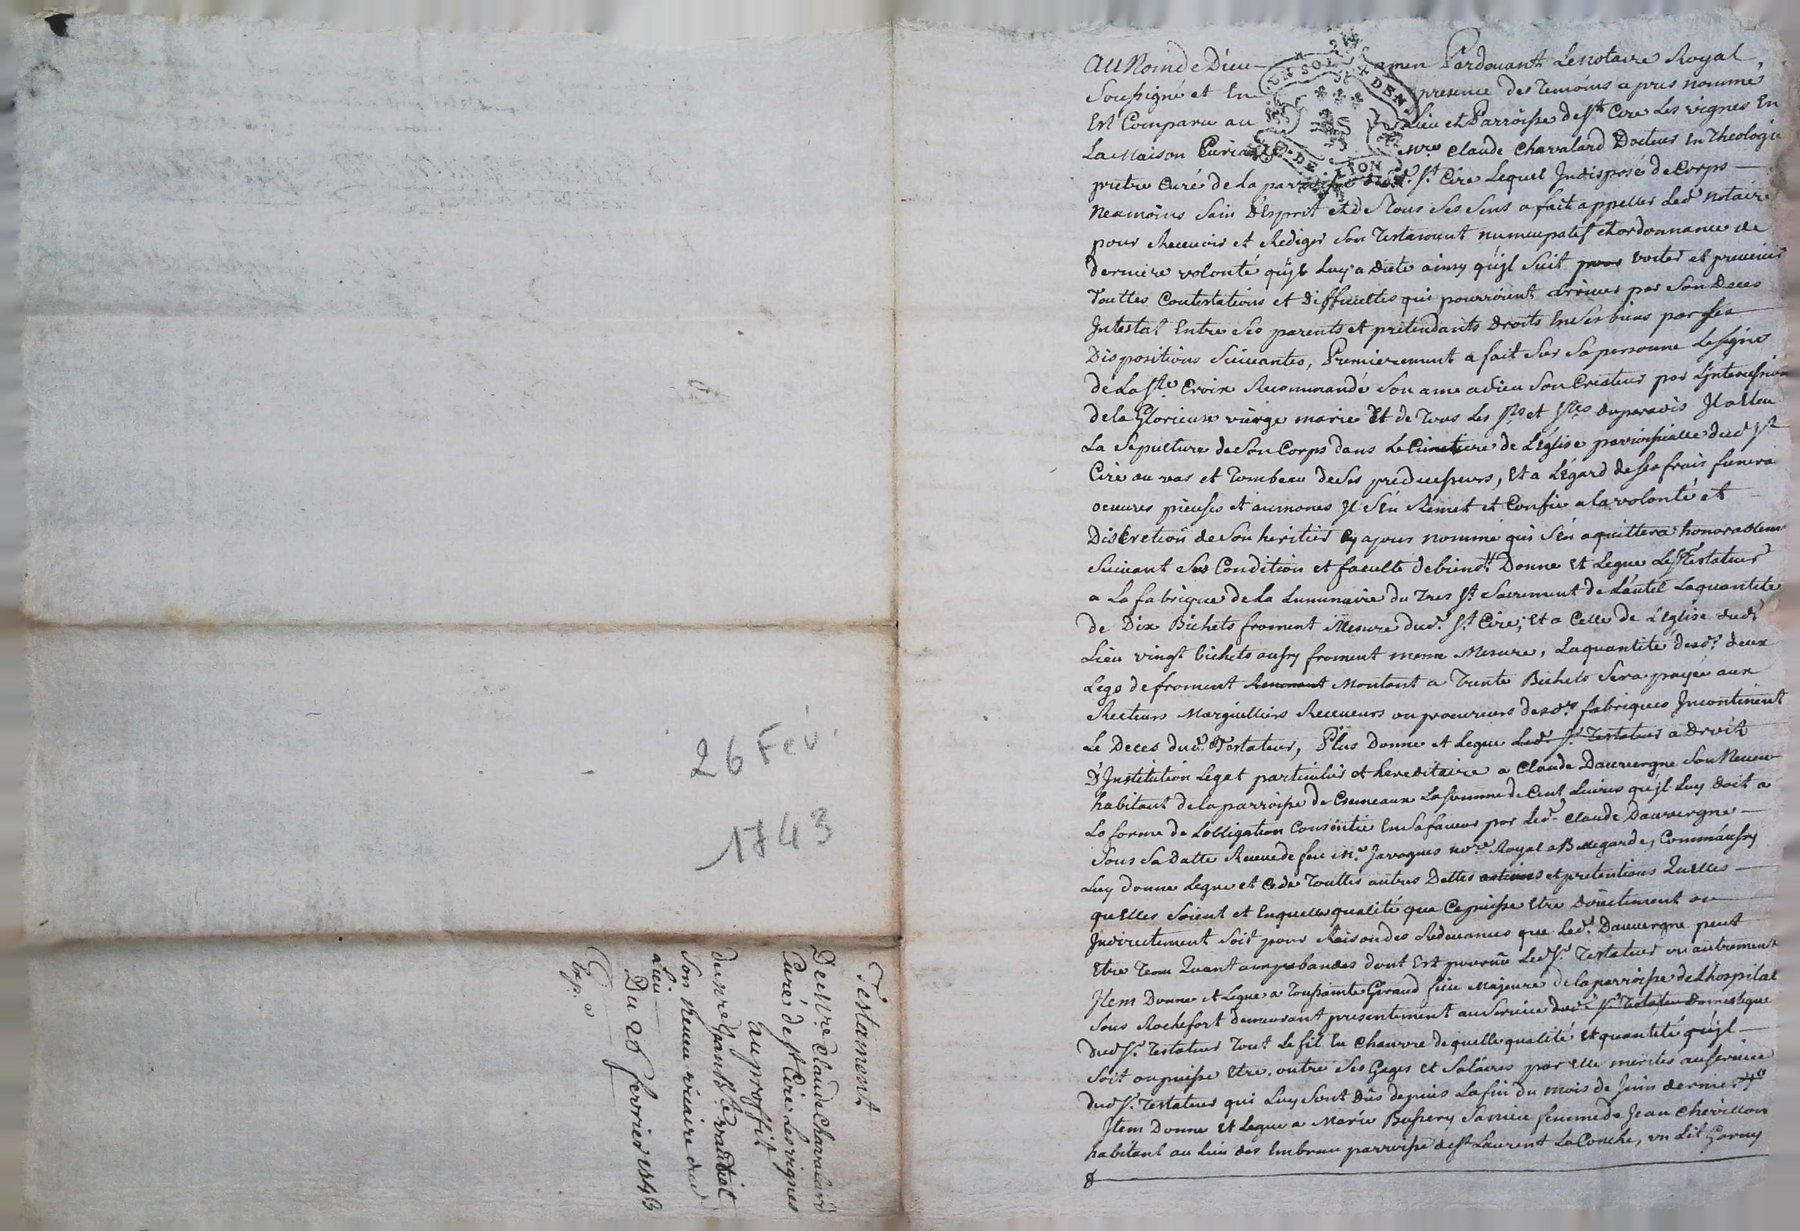 26 Fév.
1743
Testament
De Mre Claude Chavalard
Curé de St Cire Les vignes
au proffit
de mre Jean Bte
son neveu vicaire dud
St Lieu
Du 26 fevrier 1743
Exp. o
UN SOL DEN
G. DE LION
AU Nom de Dieu amen Pardevant Le notaire Royal
Soussigné et En presence des temoins apres nommé
Est Comparu au Lieu et Parroisse de St Cire Les vignes En
La Maison Curiale mre Claude Chavalard Docteur In Theologie
pretre curé de la parroisse dud. St Cire Lequel Indisposé de Corps
neamoins sain d'Esprit et de Tous ses sens a fait appeller Led notaire
pour Recevoir et Rediger son Testament nuncupatif et ordonnance de
derniere volonté qu'jl Luy a dicté ainsy qu'jl suit pour eviter et prevenir
Touttes Contestations et difficultes qui pourroient arriver par son Deces
Intestat Entre ses parents et pretendants droits En ses biens par ses
Dispositions suivantes, Premierement a fait sur sa personne Le signe
de La Ste Croix Recommandé son ame a dieu son Createur par L'jntercession
de la Glorieuse vierge marie Et de Tous Les Sts et Stes du paradis
La sepulture de son Corps dans Le Cimetiere de L'église parroissialle dud St
Cire au vas et Tombeau de ses predecesseurs, Et a L'égard de ses frais funera
oeuvres pieuses et aumones Il s'én Remet et Confie a la volonté et
Discretion de son heritier cy apres nommé qui s'én aquittera honorablem
suivant sa Condition et faculté de biens. Donne Et Legue Le sr Testateur
a La fabrique de la Luminaire du Tres St Sacrement de L'autel La quantité
de Dix Bichets froment Mesure dud. St Cire, Et a Celle de L'église dud
Lieu vingt bichets aussy froment meme Mesure, La quantité desd. deux
Legs de froment Montant a Trente Bichets sera payée aux
Recteurs Marguilliers Receveurs ou procureurs desd. fabriques Incontinent
Le Deces dud. Testateur, Plus donne et Legue Led. Sr Testateur a droit
D'Institution Legat particulier et hereditaire a Claude Dauvergne son Neveu
habitant de la parroisse de Cremeaux La somme de Cent Livres qu'jl Luy doit a
La forme de L'obligation Consentie En sa faveur par Led. Claude Dauvergne
sous sa datte Receue de feu Me Javogues nore Royal a Bellegarde, Comm'aussy
Luy donne Legue et Cede Touttes autres Dettes actives et pretentions Quelles
quElles soient et En quelle qualité que Ce puisse Etre directement ou
Indirectement soit pour Raison des Redevances que Led. Dauvergne peut
Etre Tenu dont Est Led Sr Testateur ou autrement
Item Donne et Legue a Toussainte Giraud fille Majeure de la parroisse de L'hospital
sous Rochefort demeurant presentement au service dud Sr Testateur domestique
dud Sr Testateur Tout Le fil de Chanvre de quelle qualité Et quantité qu'jl
soit ou puisse Etre, outre ses Gages et Salaires par Elle merités au service
dud Sr Testateur qui Luy sont dûs depuis La fin du mois de Juin dernier
Item Donne Et Legue a Marie Bussery sa niece femme de Jean Chevillon
habitant au Lieu des Embrun parroisse de St Laurent La Conche, un Lit Garny